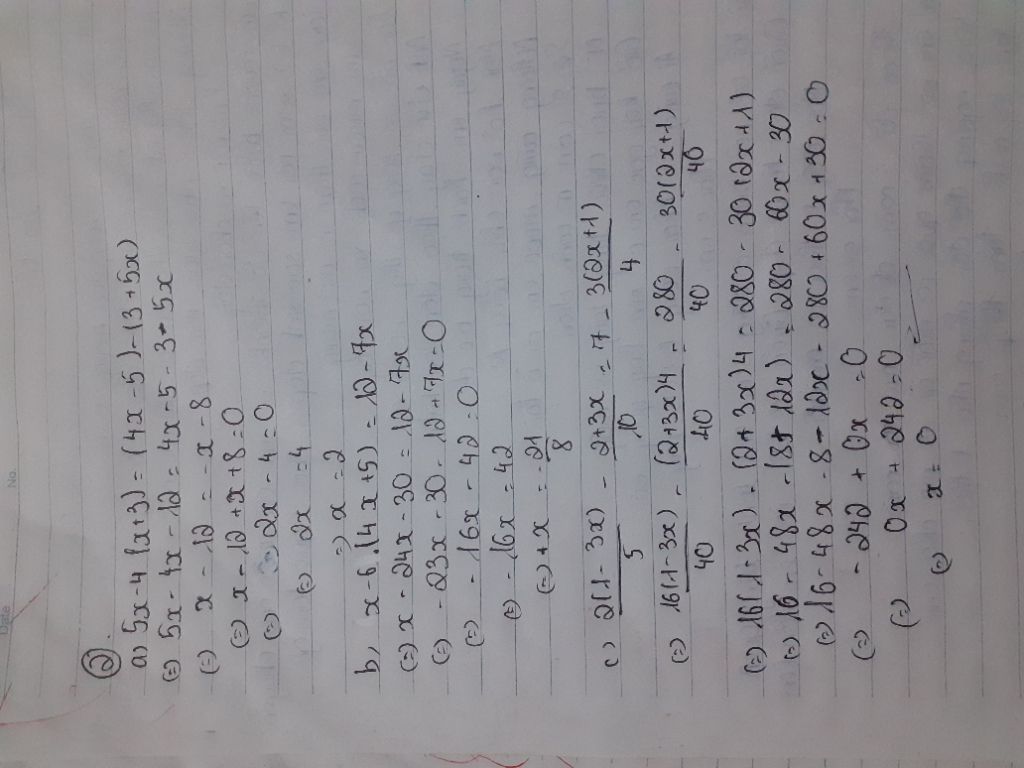 No.
Date
②
a) 5x - 4(x+3) = (4x - 5) - (3+5x)
(=) 5x - 4x - 12 = 4x - 5 - 3 - 5x
(=) x - 12 = -x - 8
(=) x - 12 + x + 8 = 0
(=) 2x - 4 = 0
(=) 2x = 4
=) x = 2
b, x - 6.(4x+5) = 12 - 7x
(=) x - 24x - 30 = 12 - 7x
(=) -23x - 30 - 12 + 7x = 0
(=) -16x - 42 = 0
(=) -16x = 42
(=) + x = -21/8
c) 2(1-3x)/5 - 2+3x/10 = 7 - 3(2x+1)/4
(=) 16(1-3x)/40 - (2+3x)4/40 = 280/40 - 30(2x+1)/40
(=) 16(1-3x) - (2+3x)4 = 280 - 30(2x+1)
(=) 16 - 48x - (8+12x) = 280 - 60x - 30
(=) 16 - 48x - 8 - 12x - 280 + 60x + 30 = 0
(=) -242 + 0x = 0
(=) 0x + 242 = 0
(=) x = 0